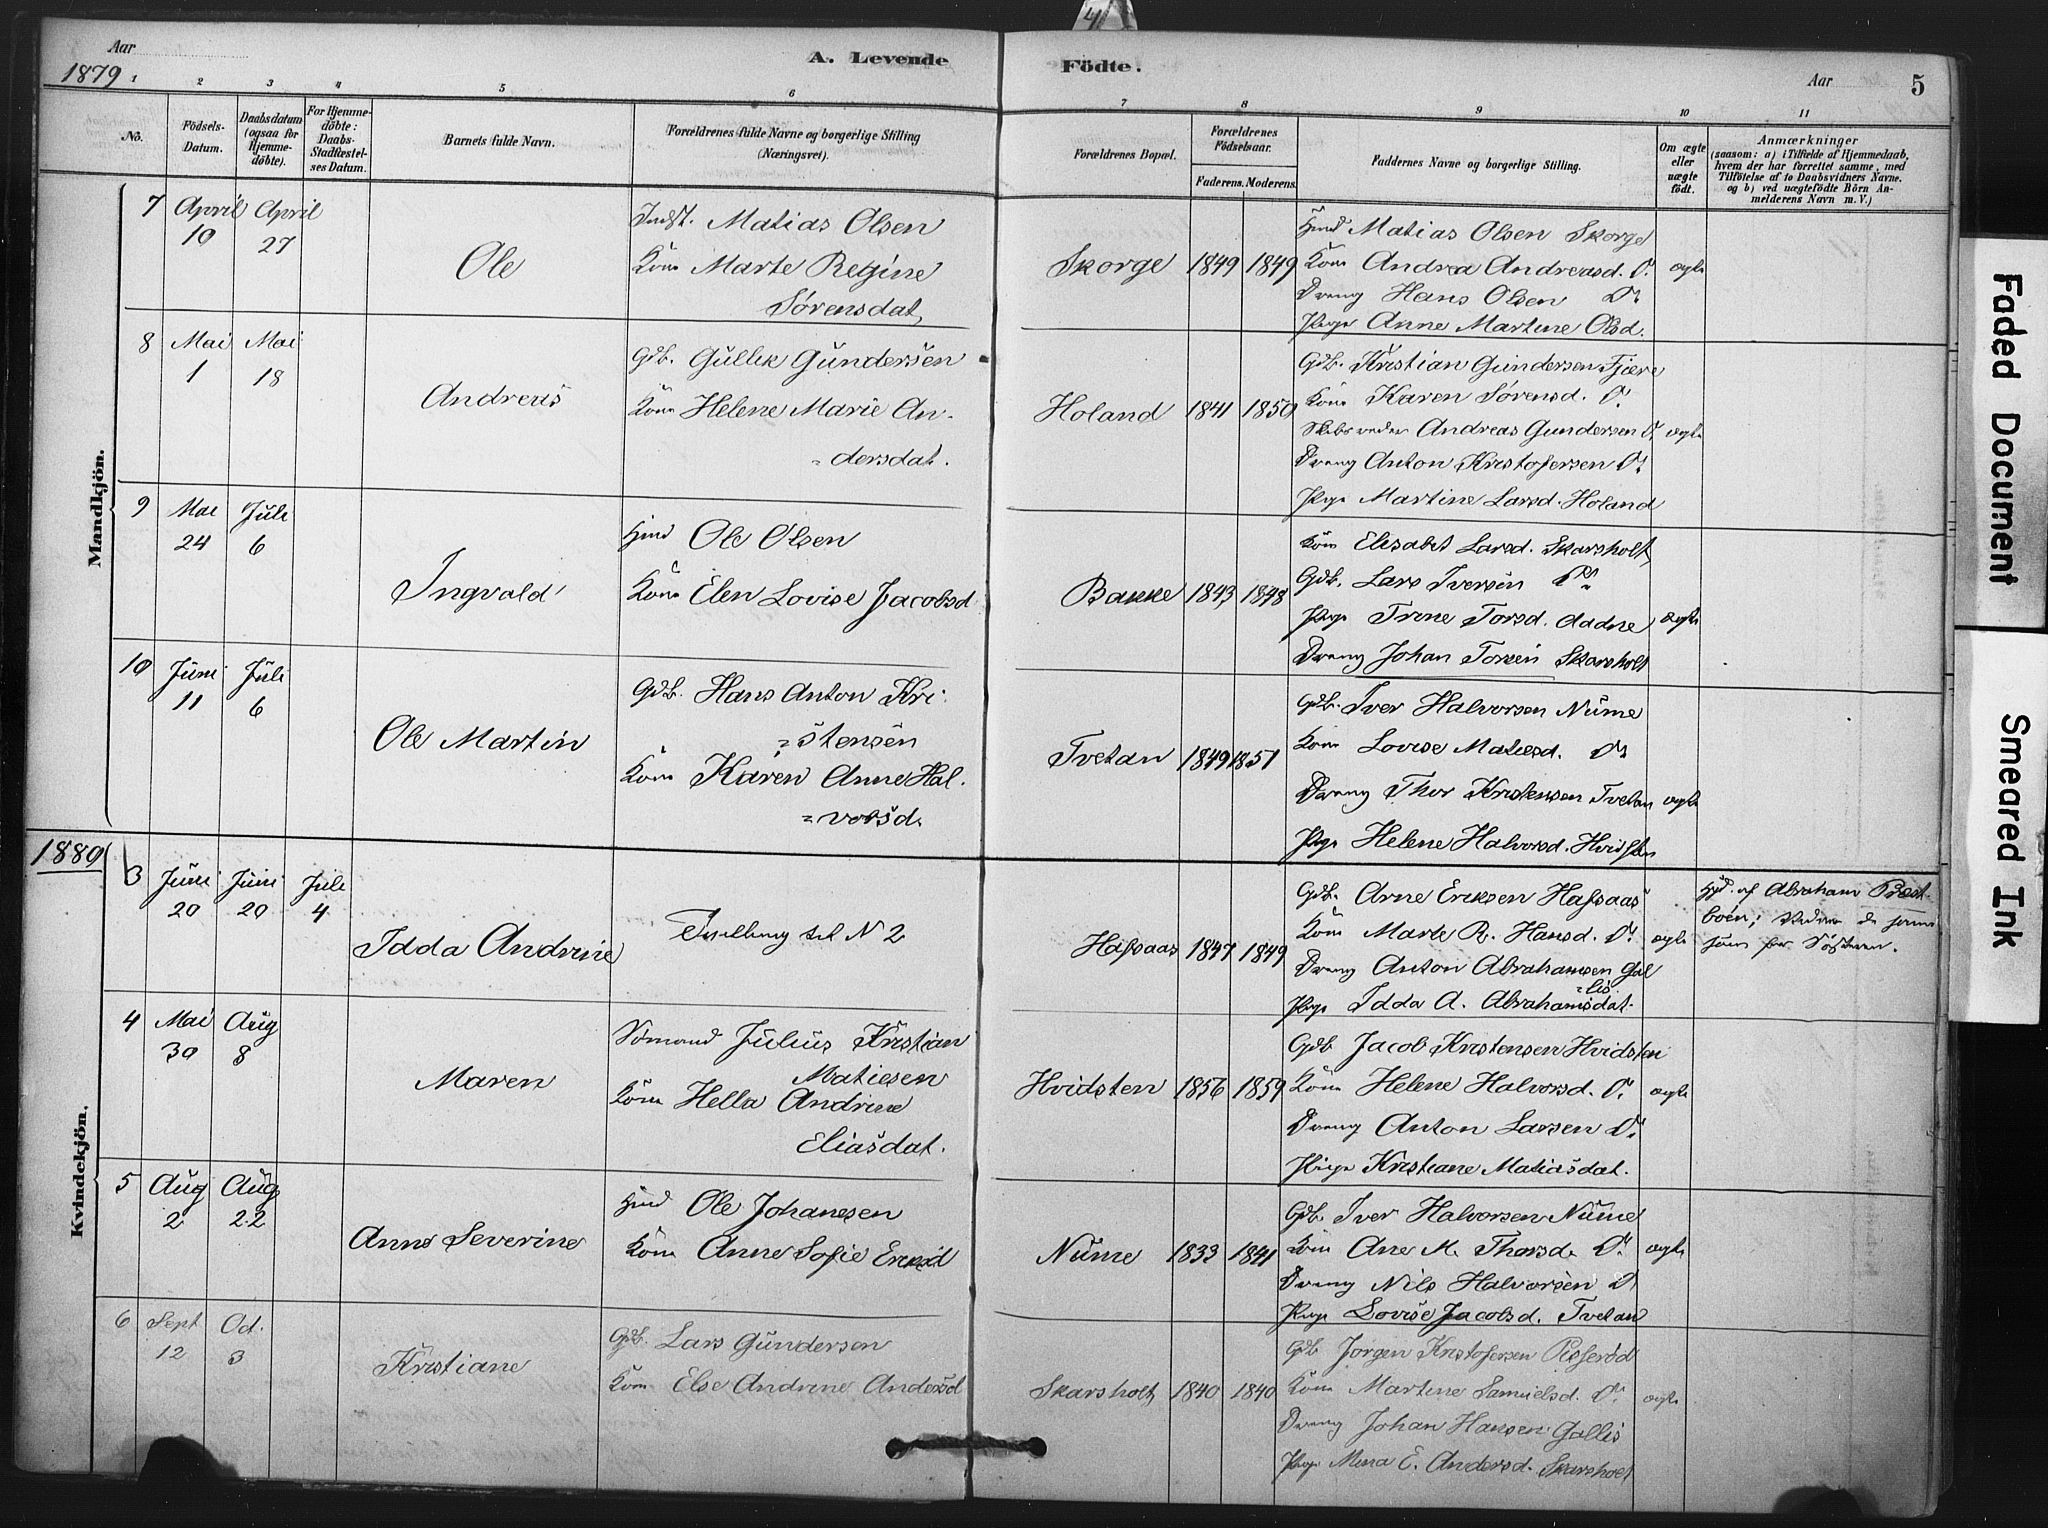 4
Aar
1879
A. Levende Födte.
Aar
5
1 2 3 4 5 6 7 8 9 10 11
No.
Födsels-Datum.
Daabsdatum (ogsaa for Hjemmedöbte).
For Hjemmedöbte: Daabs-Stadfæstelses Datum.
Barnets fulde Navn.
Forældrenes fulde Navne og borgerlige Stilling (Næringsvei).
Forældrenes Bopæl.
Forældrenes Födselsaar.
Faderens. Moderens.
Faddernes Navne og borgerlige Stilling.
Om ægte eller uægte födt.
Anmærkninger
(saasom: a) i Tilfælde af Hjemmedaab,
hvem der har forrettet samme, med
Tilföielse af to Daabsvidners Navne,
og b) ved uægtefödte Börn Anmelderens Navn m. V.)
Mandkjön.
7 April 19 April 27
Ole
Indst. Matias Olsen
Kone Marte Regine
Sørensdat,
Skorge 1849 1849
Hmd Matias Olsen Skorge
Kone Andrea Andreasd. Do
Dreng Hans Olsen Do
Pige Anne Martine Olsd.
ægte
8 Mai 1 Mai 18
Andreas
Gdb. Gullik Gundersen
Kone Helene Marie An-
dersdat.
Holand 1841 1850
Gdb. Kristian Gundersen Fjære
Kone Karen Sørensd. Do
Andreas Gundersen Do
Dreng Anton Kristofersen Do
Pige Martine Larsd. Holand
ægte
9 Mai 24 Juli 6
Ingvald
Hmd Ole Olsen
Kone Elen Lovise Jacobsd
Bakke 1843 1848
Kone Elisabet Larsd. Skarsholt
Gdb. Lars Iversen Do
Pige Trine Torsd. Aadne
Dreng Johan Torsen Skarsholt
ægte
10 Juni 11 Juli 6
Ole Martin
Gdb. Hans Anton Kri-
stensen
Kone Karen Anne Hal-
vorsd.
Tvetan 1849 1851
Gdb. Iver Halvorsen Nume
Kone Lovise Matiesd. Do
Dreng Thor Kristensen Tvetan
Pige Helene Halvorsd. Hvidsten
ægte
1880
Kvindekjön.
3 Juni 20 Juni 20 Juli 4
Idda Andrine
Tvilling til N 2
Hafsaas 1847 1849
Gdb. Arne Eriksen Hafsaas
Kone Marte R. Hansd. Do
Dreng Anton Abrahamsen Gal
lis
Pige Idda A. Abrahamsdat.
ægte
Hjd. af Abraham
boen; Vidner de samme
som for Søsteren.
4 Mai 30 Aug 8
Maren
Sømand Julius Kristian
Matiesen
Kone Hella Andrine
Eliasdat.
Hvidsten 1856 1859
Gdb Jacob Kristensen Hvidsten
Kone Helene Halvorsd. Do
Dreng Anton Larsen Do
Pige Kristiane Matiasdat.
ægte
5 Aug 2 Aug 22
Anne Severine
Hmd Ole Johanesen
Kone Anne Sofie Eriksd
Nume 1833 1841
Gdb. Iver Halvorsen Nume
Kone Ane M. Thorsd. Do
Dreng Nils Halvorsen Do
Pige Lovise Jacobsd. Tvetan
ægte
6 Sept 12 Oct. 3
Kristiane
Gdb. Lars Gundersen
Kone Else Andrine Andersd
Skarsholt 1840 1840
Gdb Jørgen Kristofersen Piserød
Kone Martine Samuelsd. Do
Dreng Johan Hansen Gallis
Pige Mina E. Andersd. Skarsholt
ægte
Faded Document
Smeared Ink